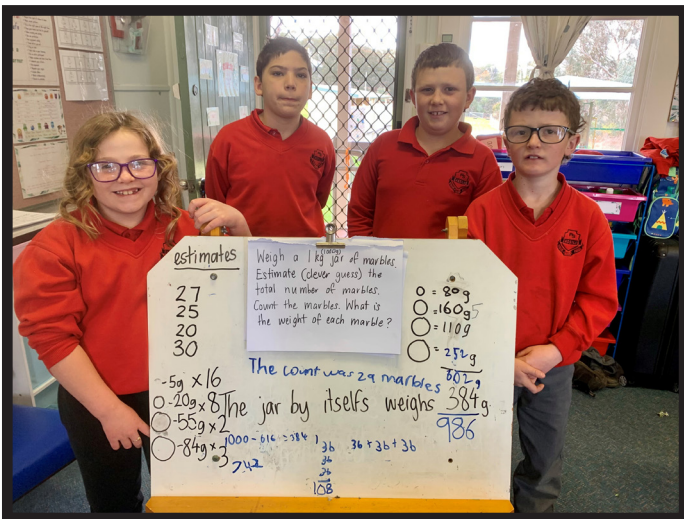 estimates
27
25
20
30
Weigh a 1 kg (1000g) jar of marbles.
Estimate (clever guess) the
total number of marbles.
Count the marbles. What is
the weight of each marble?
= 80g
= 160g
= 110g
= 252g
602g
The count was 29 marbles
-5g x16
-20g x 8
-55g x 2
-84g x 3
The jar by itself weighs 384g
986
1000 - 616 = 384
742
36
36
36
108
36 + 36 + 36